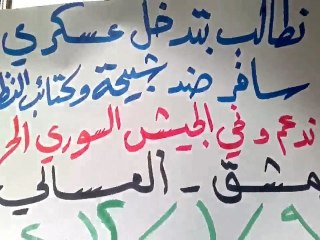 نطالب بتدخل عسكري
سافر ضد شبيحة وكتائب النظ
ندعم وفي الجيش السوري الحر
دمشق - العسالي
٢٠١٢/١/٩